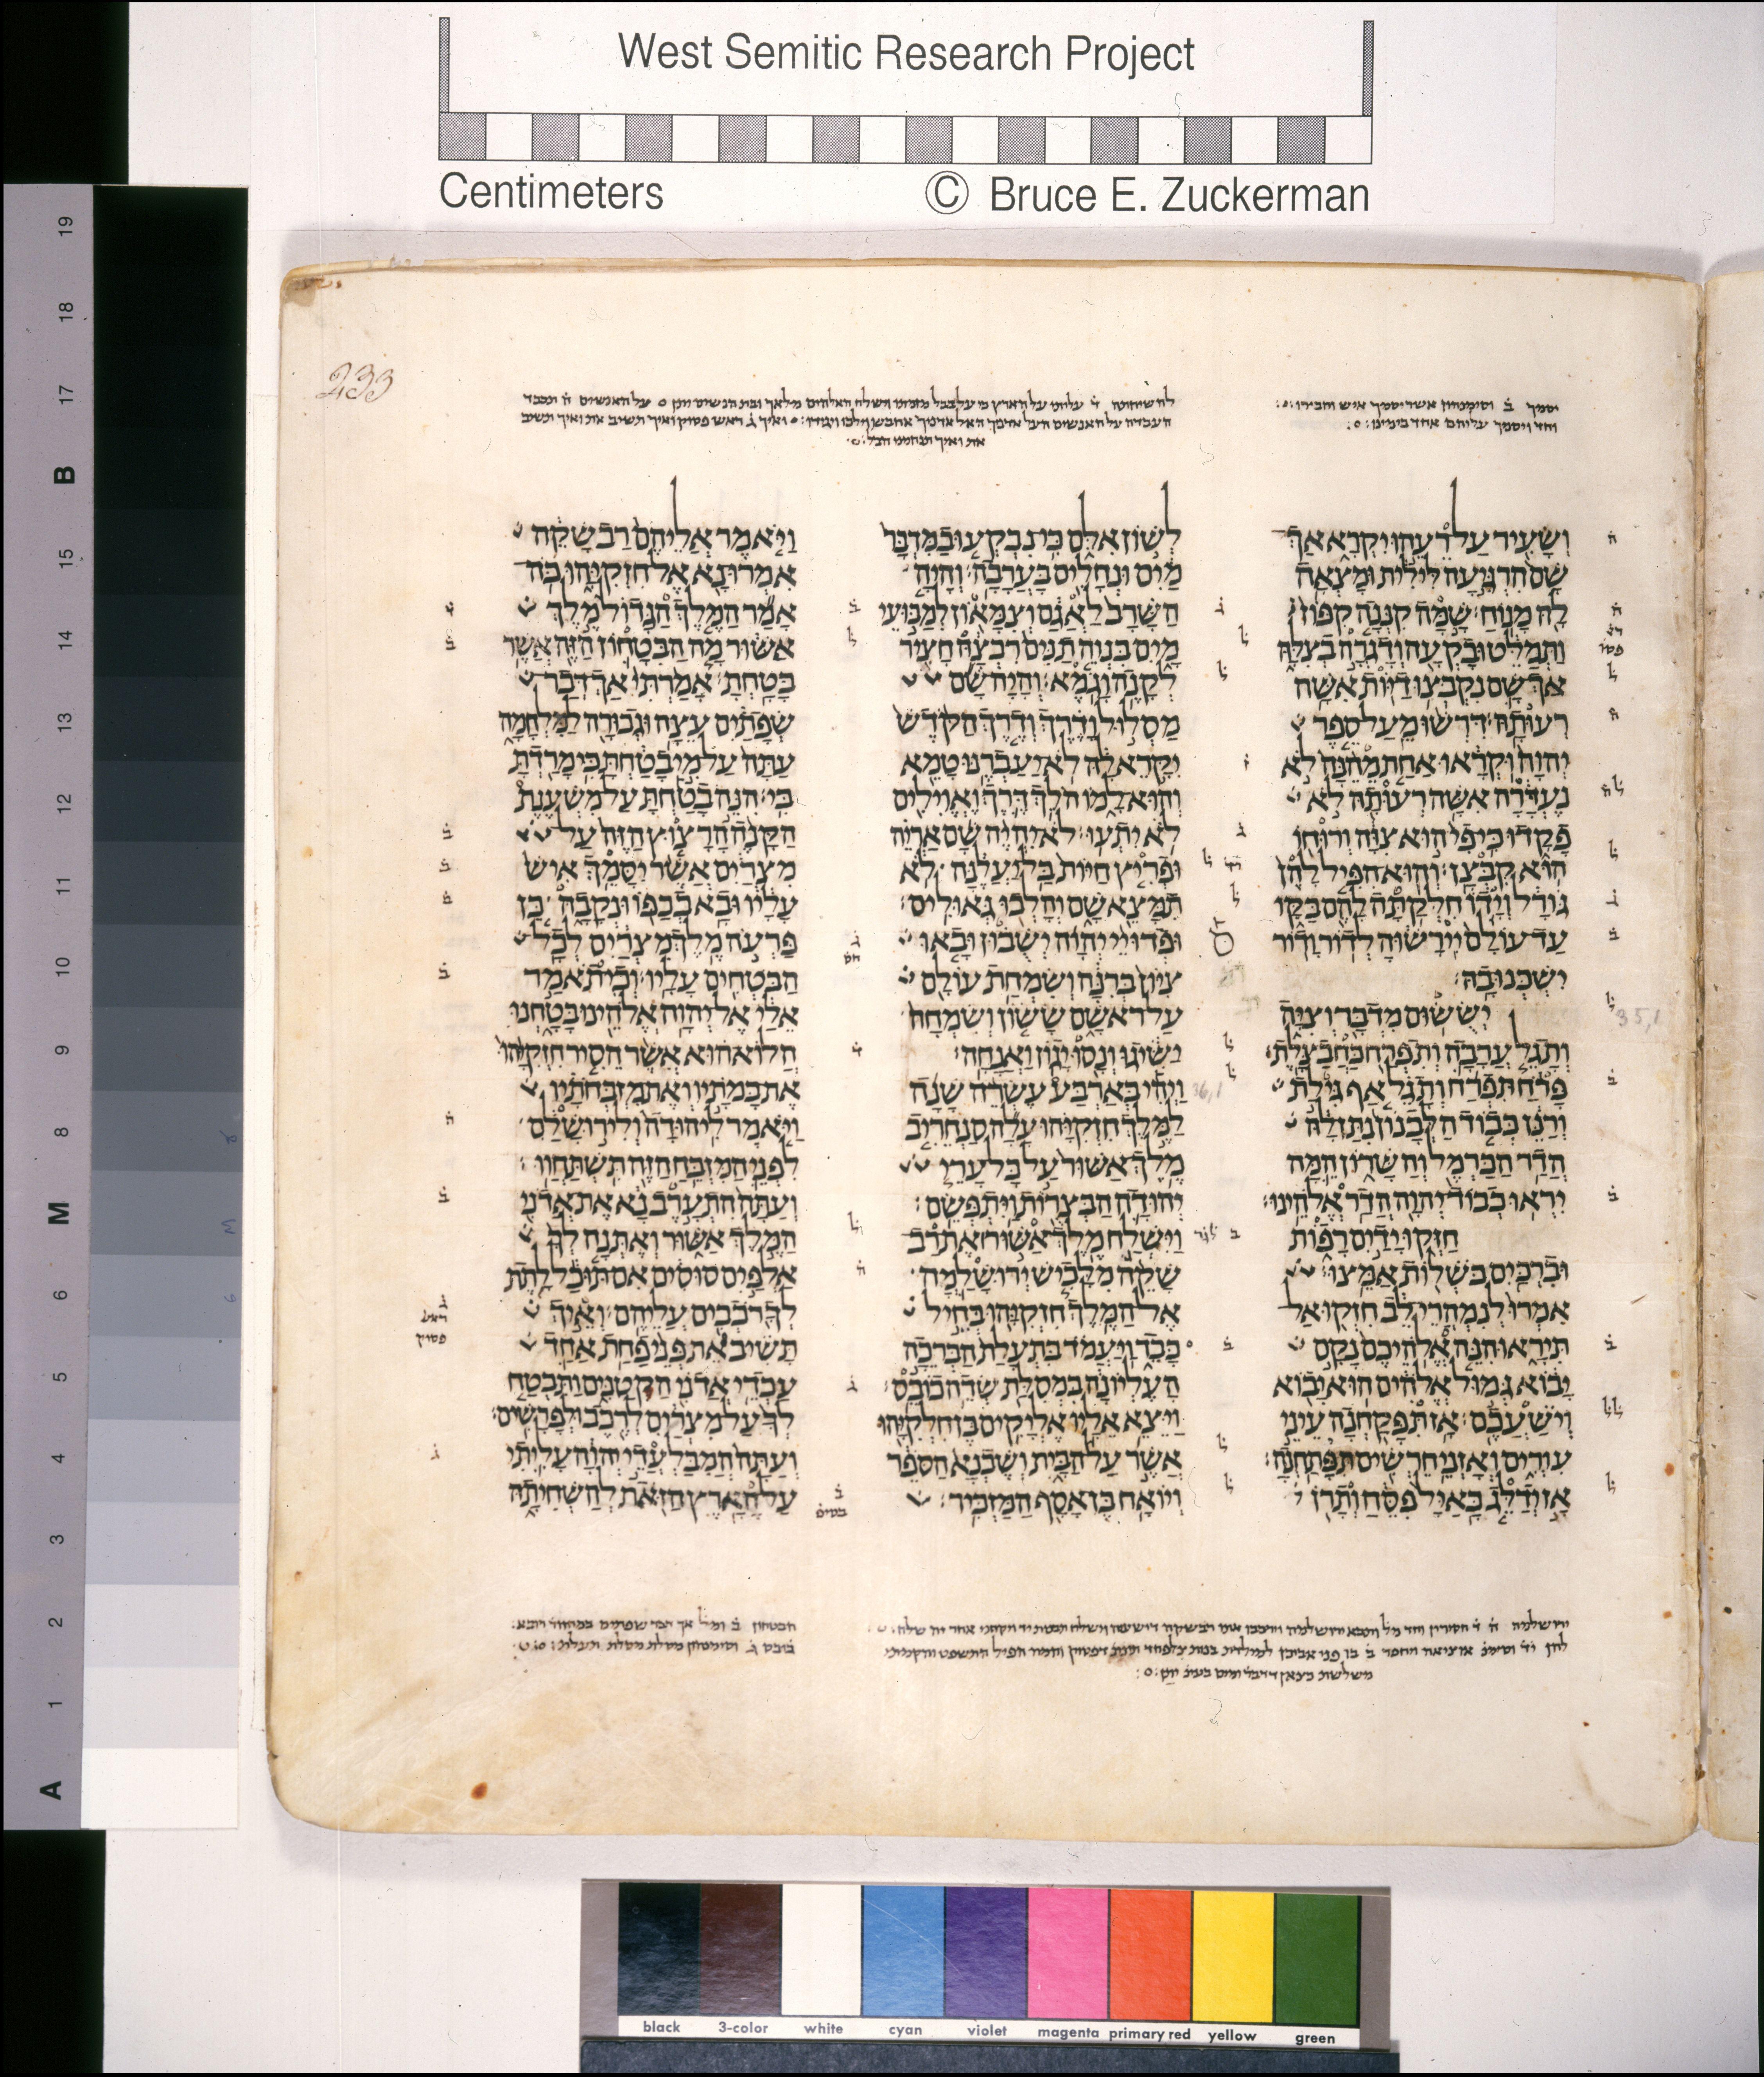 West Semitic Research Project
Centimeters © Bruce E. Zuckerman
233
ושעיר על רעהו יקרא אך
שם הרגיעה לילית ומצאה
לה מנוח׃ שמה קננה קפוז
ותמלט ובקעה ודגרה בצלה
אך שם נקבצו דיות אשה
רעותה׃ דרשו מעל ספר
יהוה וקראו אחת מהנה לא
נעדרה אשה רעותה לא
פקדו כי פי הוא צוה ורוחו
הוא קבצן׃ והוא הפיל להן
גורל וידו חלקתה להם בקו
עד עולם יירשוה לדור ודור
ישכנו בה׃
יששום מדבר וציה
ותגל ערבה ותפרח כחבצלת׃
פרח תפרח ותגל אף גילת
ורנן כבוד הלבנון נתן לה
הדר הכרמל והשרון המה
יראו כבוד יהוה הדר אלהינו׃
חזקו ידים רפות
וברכים כשלות אמצו׃
אמרו לנמהרי לב חזקו אל
תיראו הנה אלהיכם נקם
יבוא גמול אלהים הוא יבוא
וישעכם׃ אז תפקחנה עיני
עורים ואזני חרשים תפתחנה׃
אז ידלג כאיל פסח ותרן
לשון אלם כי נבקעו במדבר
מים ונחלים בערבה׃ והיה
השרב לאגם וצמאון למבועי
מים בנוה תנים רבצה חציר
לקנה וגמא׃ והיה שם
מסלול ודרך ודרך הקדש
יקרא לה לא יעברנו טמא
והוא למו הלך דרך ואוילים
לא יתעו׃ לא יהיה שם אריה
ופריץ חיות בל יעלנה לא
תמצא שם והלכו גאולים׃
ופדויי יהוה ישבון ובאו
ציון ברנה ושמחת עולם
על ראשם ששון ושמחה
ישיגו ונסו יגון ואנחה׃
ויהי בארבע עשרה שנה
למלך חזקיהו עלה סנחריב
מלך אשור על כל ערי
יהודה הבצרות ויתפשם׃
וישלח מלך אשור את רב
שקה מלכיש ירושלמה
אל המלך חזקיהו בחיל
כבד ויעמד בתעלת הברכה
העליונה במסלת שדה כובס׃
ויצא אליו אליקים בן חלקיהו
אשר על הבית ושבנא הספר
ויואח בן אסף המזכיר׃
ויאמר אליהם רב שקה
אמרו נא אל חזקיהו כה
אמר המלך הגדול מלך
אשור מה הבטחון הזה אשר
בטחת׃ אמרתי אך דבר
שפתים עצה וגבורה למלחמה
עתה על מי בטחת כי מרדת
בי׃ הנה בטחת על משענת
הקנה הרצוץ הזה על
מצרים אשר יסמך איש
עליו ובא בכפו ונקבה כן
פרעה מלך מצרים לכל
הבטחים עליו׃ וכי תאמר
אלי אל יהוה אלהינו בטחנו
הלוא הוא אשר הסיר חזקיהו
את במתיו ואת מזבחתיו
ויאמר ליהודה ולירושלם
לפני המזבח הזה תשתחוו׃
ועתה התערב נא את אדני
המלך אשור ואתנה לך
אלפים סוסים אם תוכל לתת
לך רכבים עליהם׃ ואיך
תשיב את פני פחת אחד
עבדי אדני הקטנים ותבטח
לך על מצרים לרכב ולפרשים׃
ועתה המבלעדי יהוה עליתי
על הארץ הזאת להשחיתה
35,1
36,1
black 3-color white cyan violet magenta primary red yellow green
A 1 2 3 4 5 6 M 8 9 10 11 12 13 14 15 B 17 18 19